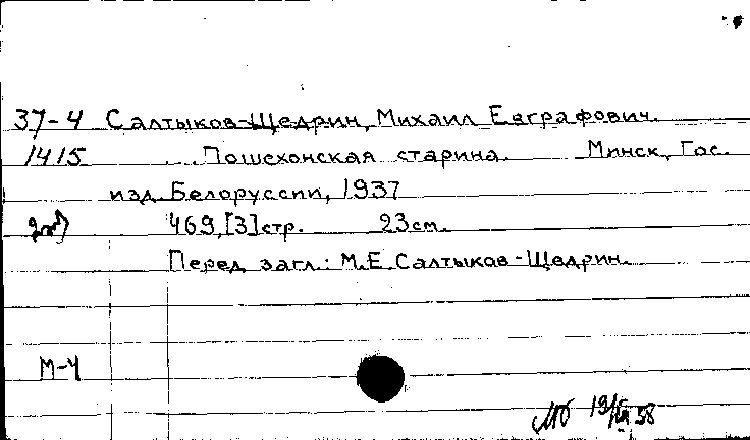 37-4 Салтыков-Щедрин, Михаил Евграфович.
1415 ... Пошехонская старина. Минск, Гос.
изд. Белоруссии, 1937
469,[3]стр. 23см.
Перед загл.: М.Е.Салтыков-Щедрин.
М-4